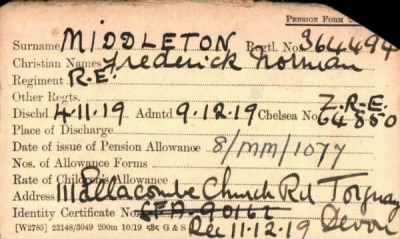 PENSION FORM
Surname MIDDLETON Regtl. No. 364494
Christian Names Frederick Norman
Regiment R.E.
Other Regts. Z.R.E.
Dischd 4.11.19 Admtd 9.12.19 Chelsea No. 64850
Place of Discharge
Date of issue of Pension Allowance 8/MM/1077
Nos. of Allowance Forms
Rate of Children's Allowance
Address 111 Ellacombe Church Rd Torquay
Identity Certificate No. Rec 11.12.19 Devon
[W2785] 23148/3049 200m 10/19 G & S